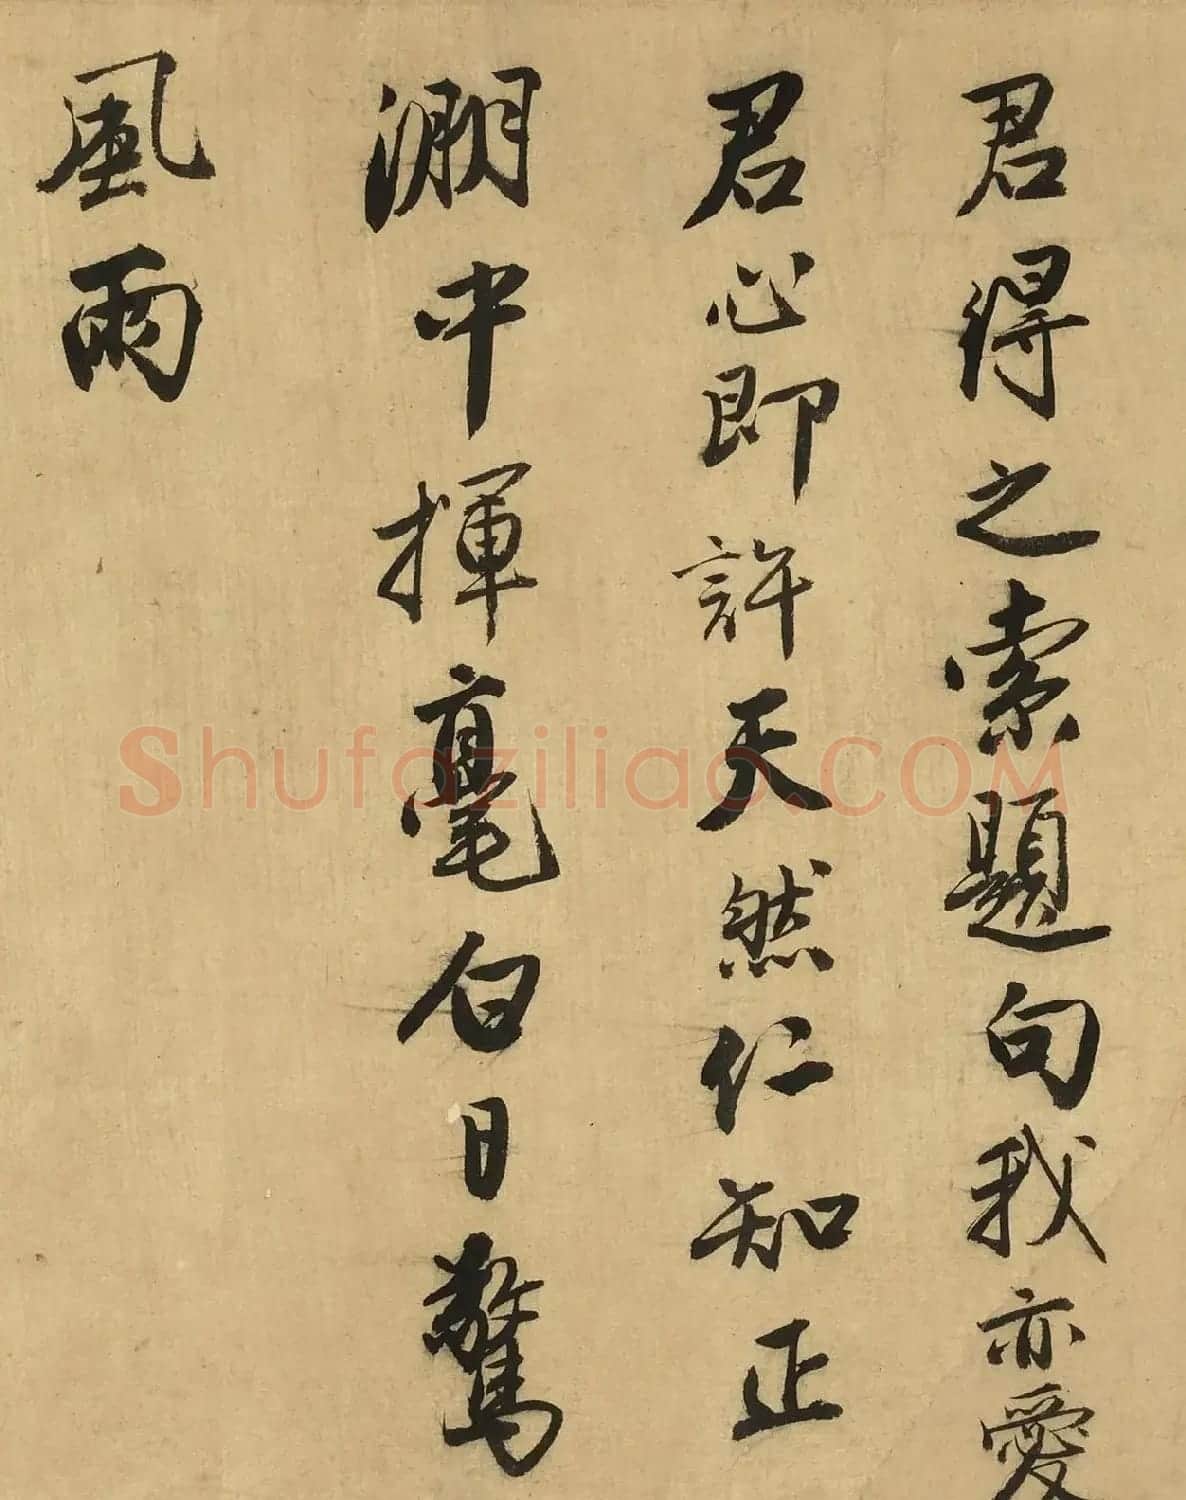 君得之索題句我亦愛
君心即許天然仁知正
淵中揮毫白日驚
風雨
Shufaziliao.COM